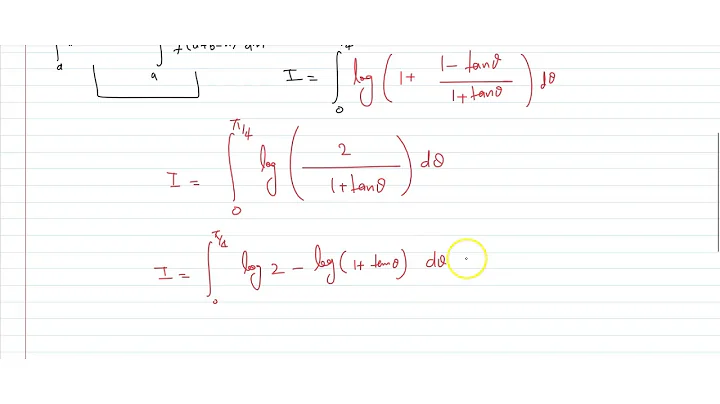 a a f(a+b-x) dx
I = ∫₀^π/4 log (1 + (1 - tanθ)/(1 + tanθ)) dθ
I = ∫₀^π/4 log (2/(1 + tanθ)) dθ
I = ∫₀^π/4 log 2 - log (1 + tanθ) dθ